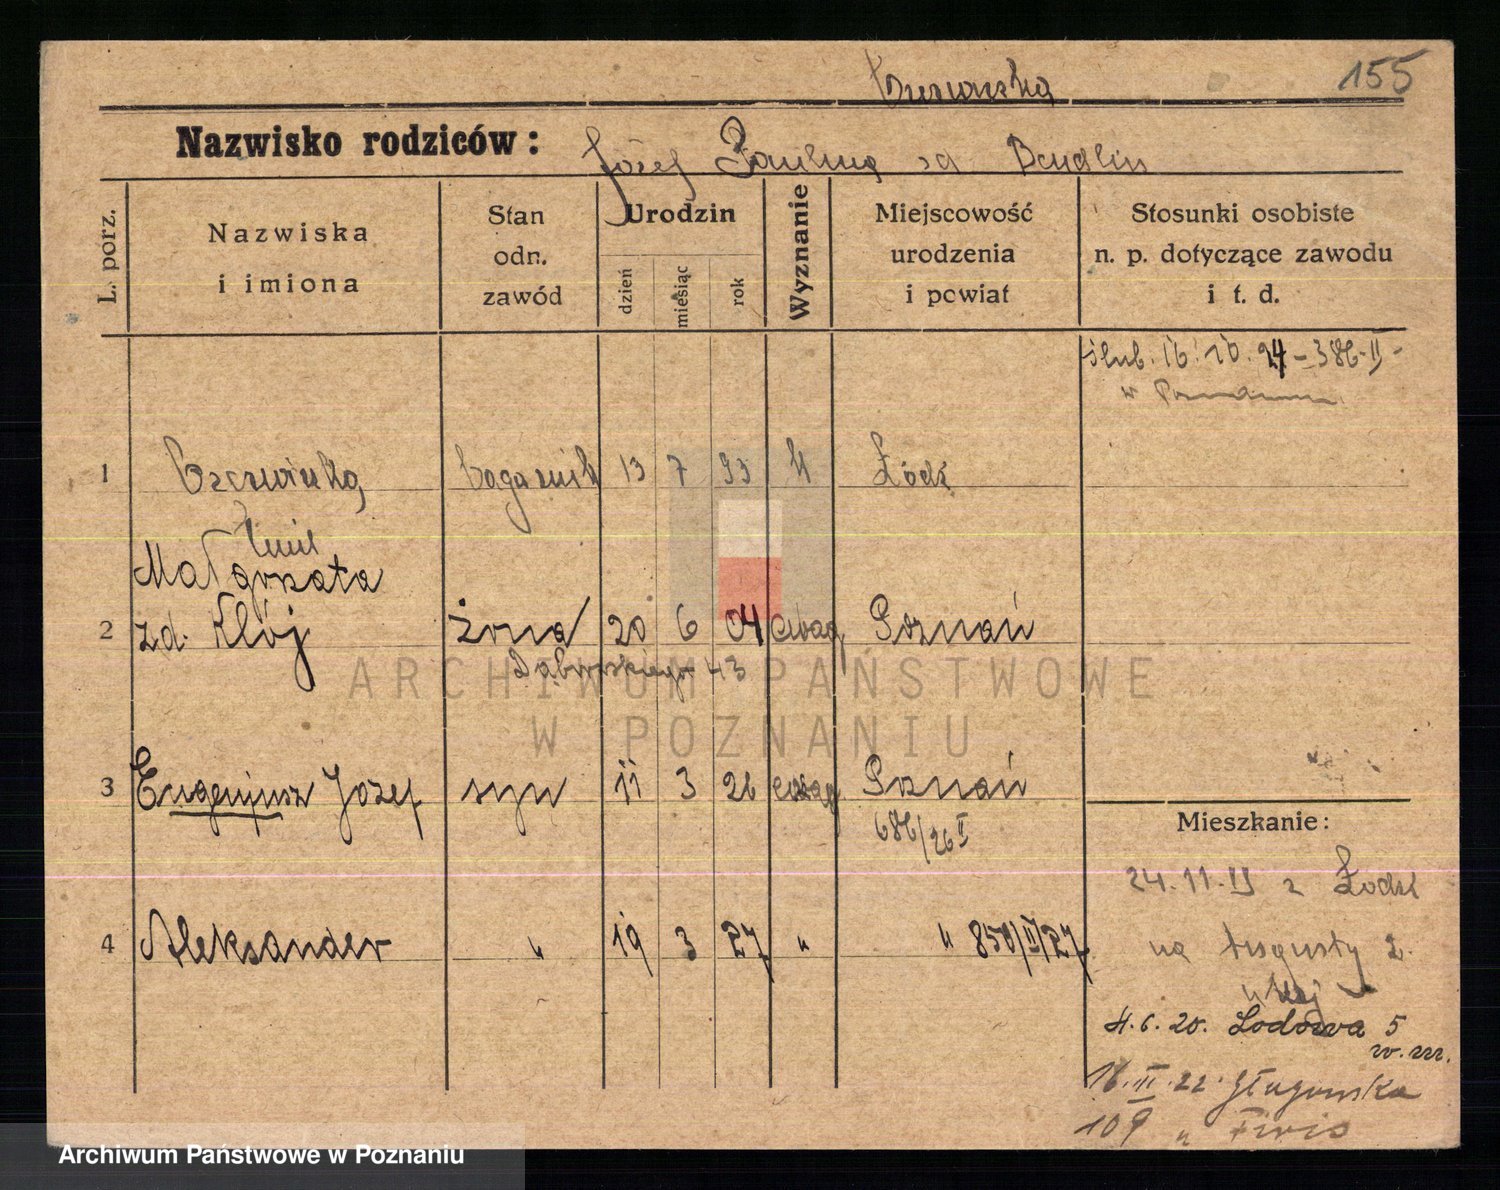 155
Nazwisko rodziców: Józef Paulina zd Bendlin
L. porz.
Nazwiska i imiona
Stan odn. zawód
Urodzin
dzień
miesiąc
rok
Wyznanie
Miejscowość urodzenia i powiat
Stosunki osobiste n. p. dotyczące zawodu i t. d.
ślub. 16. 10. 24 - 386 - II -
w Poznaniu
1 13 7 93 Łódź
Emil
Małgorzata
2 zd. Klój żona 20 6 04 ewag Poznań
Dąbrowskiego 43
3 Eugenjusz Józef syn 11 3 26 ewag Poznań
686/26 II
Mieszkanie:
24. 11. 19 z Łodzi
4 Aleksander " 19 3 27 " " 850/II/27
na 2.
u Klój
4. 6. 20. Lodowa 5
w. m.
16. II. 22. Głogowska
109 u
ARCHIWUM PAŃSTWOWE
W POZNANIU
Archiwum Państwowe w Poznaniu